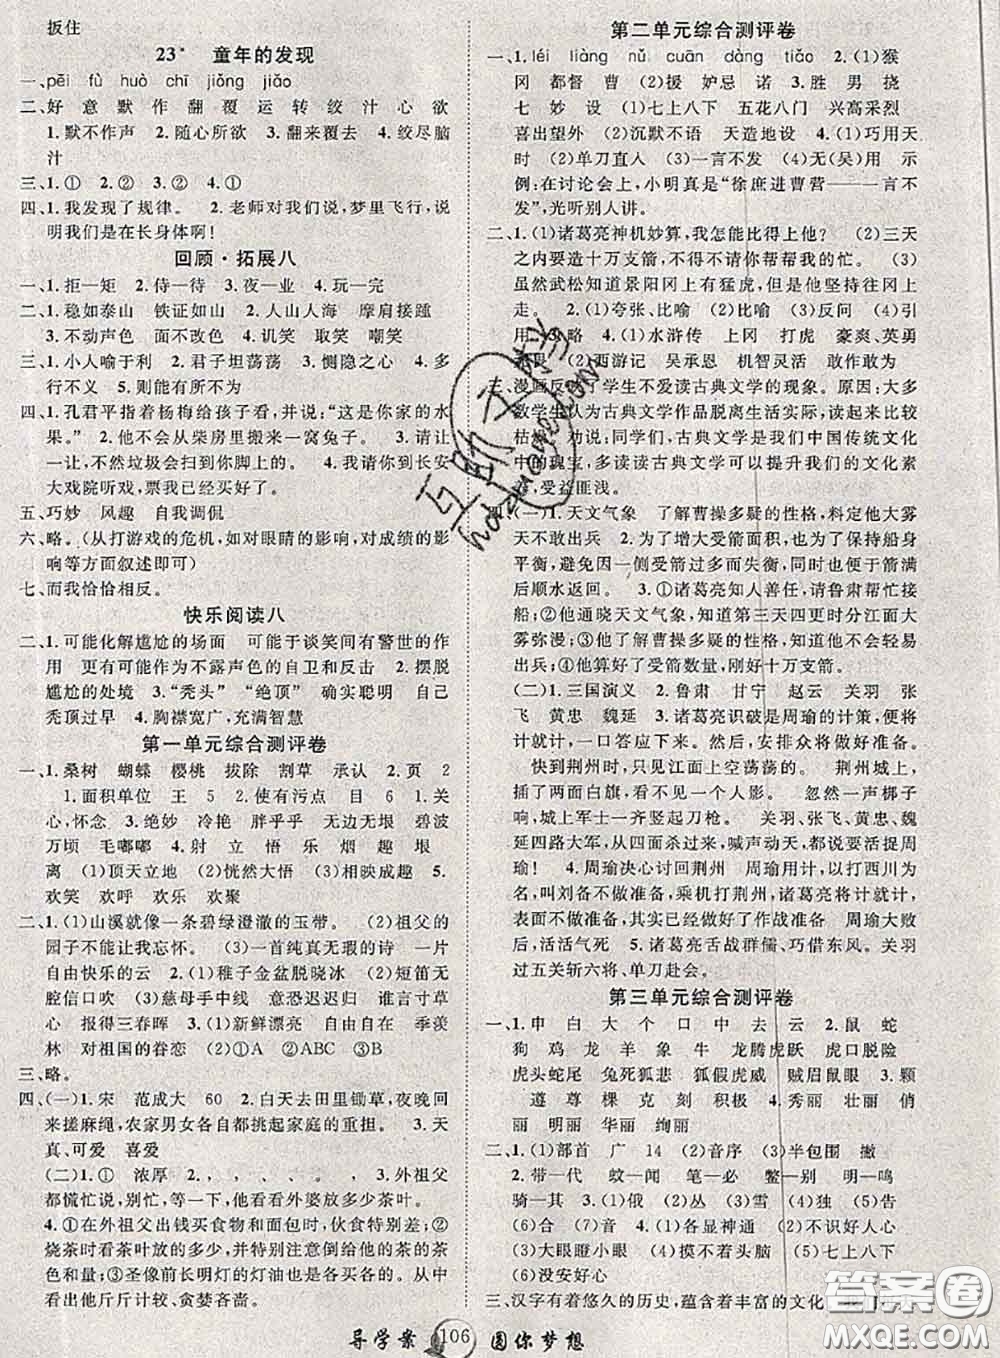 扳住
23* 童年的发现
一、pēi fù huò chī jiǒng jiǎo
二、好 意 默 作 翻 覆 运 转 绞 汁 心 欲
1.默不作声 2.随心所欲 3.翻来覆去 4.绞尽脑
汁
三、1.① ② 2.② ③ 4.①
四、1.我发现了规律。 2.老师对我们说,梦里飞行,说
明我们是在长身体啊!
回顾·拓展八
一、1.拒—矩 2.侍—待 3.夜—业 4.玩—完
二、1.稳如泰山 铁证如山 2.人山人海 摩肩接踵
3.不动声色 面不改色 4.讥笑 取笑 嘲笑
三、1.小人喻于利 2.君子坦荡荡 3.恻隐之心 4.多
行不义 5.则能有所不为
四、1.孔君平指着杨梅给孩子看,并说:“这是你家的水
果。” 2.他不从柴房里搬来一窝兔子。 3.请让
一让,不然垃圾会扫到你们脚上。 4.欢迎您到长安
大戏院听戏,票我已经买好了。
五、巧妙 风趣 自我调侃
六、略。(从打游戏的危机,如对眼睛的影响,对成绩的影
响等方面叙述即可)
七、而我恰恰相反。
快乐阅读八
二、1.可能化解尴尬的场面 可能于谈笑间有警世的作
用 更有可能作为不露声色的自卫和反击 2.摆脱
尴尬的处境 3.“秃头” “绝顶” 确实聪明 自己
秃顶过早 4.胸襟宽广,充满智慧
第一单元综合测评卷
一、1.桑树 蝴蝶 樱桃 拔除 割草 承认 2.页 2
1.面积单位 王 5 2.使有污点 目 6 1.关
心,怀念 3.绝妙 冷艳 胖乎乎 无边无垠 碧波
万顷 毛嘟嘟 4.射 立 悟 乐 烟 趣 垠
离 (1)顶天立地 (2)恍然大悟 (3)相映成趣 5.
欢笑 欢呼 欢乐 欢聚
二、1.(1)山溪就像一条碧绿澄澈的玉带。 (2)祖父的
园子不能让我忘怀。 (3)一首纯真无瑕的诗 一片
自由快乐的云 2.(1)稚子金盆脱晓冰 (2)短笛无
腔信口吹 (3)慈母手中线 意恐迟迟归 谁言寸草
心 报得三春晖 (4)新鲜漂亮 来自自在 季羡
林 对祖国的眷恋 (2)①A ②ABC ③C
三、略。
四、(一)1.宋 范成大 60 2.白天去田里锄草,夜晚回
来搓麻绳,农家男女各自都挑起家庭的重担。 3.天
真、可爱 喜爱
(二)1.① 浓厚 2., 、 , , 。 3.外祖父
都慌忙说,别忙,等一下,他看看外婆放多少茶叶。
4.①在外祖父出钱买食物和面包时,伙食特别差;②
烧茶时看茶叶放的多少,宁愿使用别人的茶的茶色和
茶味;③圣像前长明灯的灯油也是各买各的。从这些事
看出他斤斤计较、贪婪吝啬。
第二单元综合测评卷
一、1.léi liàng nǔ cuān dàng tiǎo 2.(1)猴
冈 都督 曹 (2)援 妒忌 诺 3.胜 男 挠
七 妙 设 (1)七上八下 五花八门 兴高采烈
喜出望外 (2)沉默不语 天造地设 4.(1)巧用天
时 (2)单刀直入 (3)一言不发 (4)无(吴)用 示
例:在讨论会上,小明真是“徐庶进曹营——一言不
发”,光听别人讲。
二、1.(1)诸葛亮神机妙算,我怎能比得上他? (2)三天
之内要造十万支箭,不得不请你帮帮我的忙。 (3)
虽然武松知道景阳冈有猛虎,但他坚持往冈上
走。 2.(1)夸张、比喻 (2)比喻 (3)反问 (4)引
用 3.略 4.(1)水浒传 上冈 打虎 豪爽、英勇
(2)西游记 吴承恩 机智灵活 敢作敢为
三、漫画反映了学生不爱读古典文学的现象。原因:大多
数学生认为古典文学作品脱离生活实际,读起来比较
枯燥。劝说:同学们,古典文学是我们中国传统文化
中的瑰宝,多读读古典文学可以提升我们的文化素
养,受益匪浅。
四、(一)1.天文气象 了解曹操多疑的性格,料定他大雾
天不敢出兵 2.为了增大受箭面积,也为了保持船
身平衡,避免因受箭过多而倾斜;同时方便取得胜利
后顺水返回。 3.①诸葛亮知人善任,请鲁肃帮忙借
船;②他通晓天文气象,知道第三天四更时分江面大
雾弥漫;③他了解曹操多疑的性格,知道他不会轻易
出兵;④他算好了受箭数量,刚好十万支箭。
(二)1.三国演义 2.鲁肃 甘宁 赵云 关羽 张
飞 黄忠 魏延 3.诸葛亮识破是周瑜的计策,便将
计就计,一口答应下来。然后,安排众将做好准备。
快到荆州时,只见江面上空荡荡的。 荆州城上,
插了两面白旗,看不见一个人影。 忽然一声梆子
响,城上军士一齐竖起刀枪。 关羽、张飞、黄忠、魏
延四路大军,从四面杀过来,喊声动天,都说要活捉周
瑜! 4.周瑜决心讨回荆州 周瑜用计,以打西川为
名,叫刘备不做准备,乘机打荆州,诸葛亮将计就计,
表面不做准备,其实已经做好了作战准备 周瑜大败
后,活活气死 5.诸葛亮舌战群儒、巧借东风。关羽
过五关斩六将、单刀赴会。
第三单元综合测评卷
一、1.申 白 大 个 口 中 去 云 2.鼠 蛇
狗 鸡 龙 羊 象 牛 龙腾虎跃 虎口脱险
虎头蛇尾 兔死狐悲 狐假虎威 贼眉鼠眼 3.颗
遵 尊 棵 克 刻 积极 4.秀丽 壮丽 俏
丽 明丽 华丽 绚丽
二、1.(1)部首 广 14 (2)音序 (3)半包围 撇
2.带—代 蚊—闻 笔—必 鳖—别 3.略
骑—其 3.(1)俄 (2)丛 (3)雪 (4)独 (5)告
(6)合 (7)音 4.(1)各显神通 (2)不识好人心
(3)大眼瞪小眼 (4)摸不着头脑 (5)七上八下
(6)没安好心
三、汉字有着悠久的历史,蕴含着丰富的文化
导学案 106 圆你梦想
互助文学
huzhuwenxue.com
答案圈
MXQE.COM